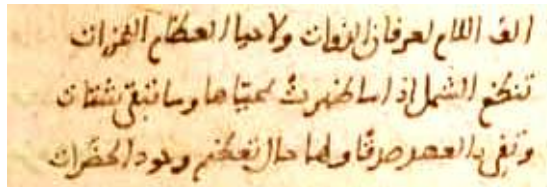 الف اللام لعرفان الذوات ولاحيا العظام النخرات
تنظم الشمل اذا ما ظهرت بمحياها وما تبقى شتات
وتفي بالعهد صرفا ولها حال تعظيم وجود الحضرات